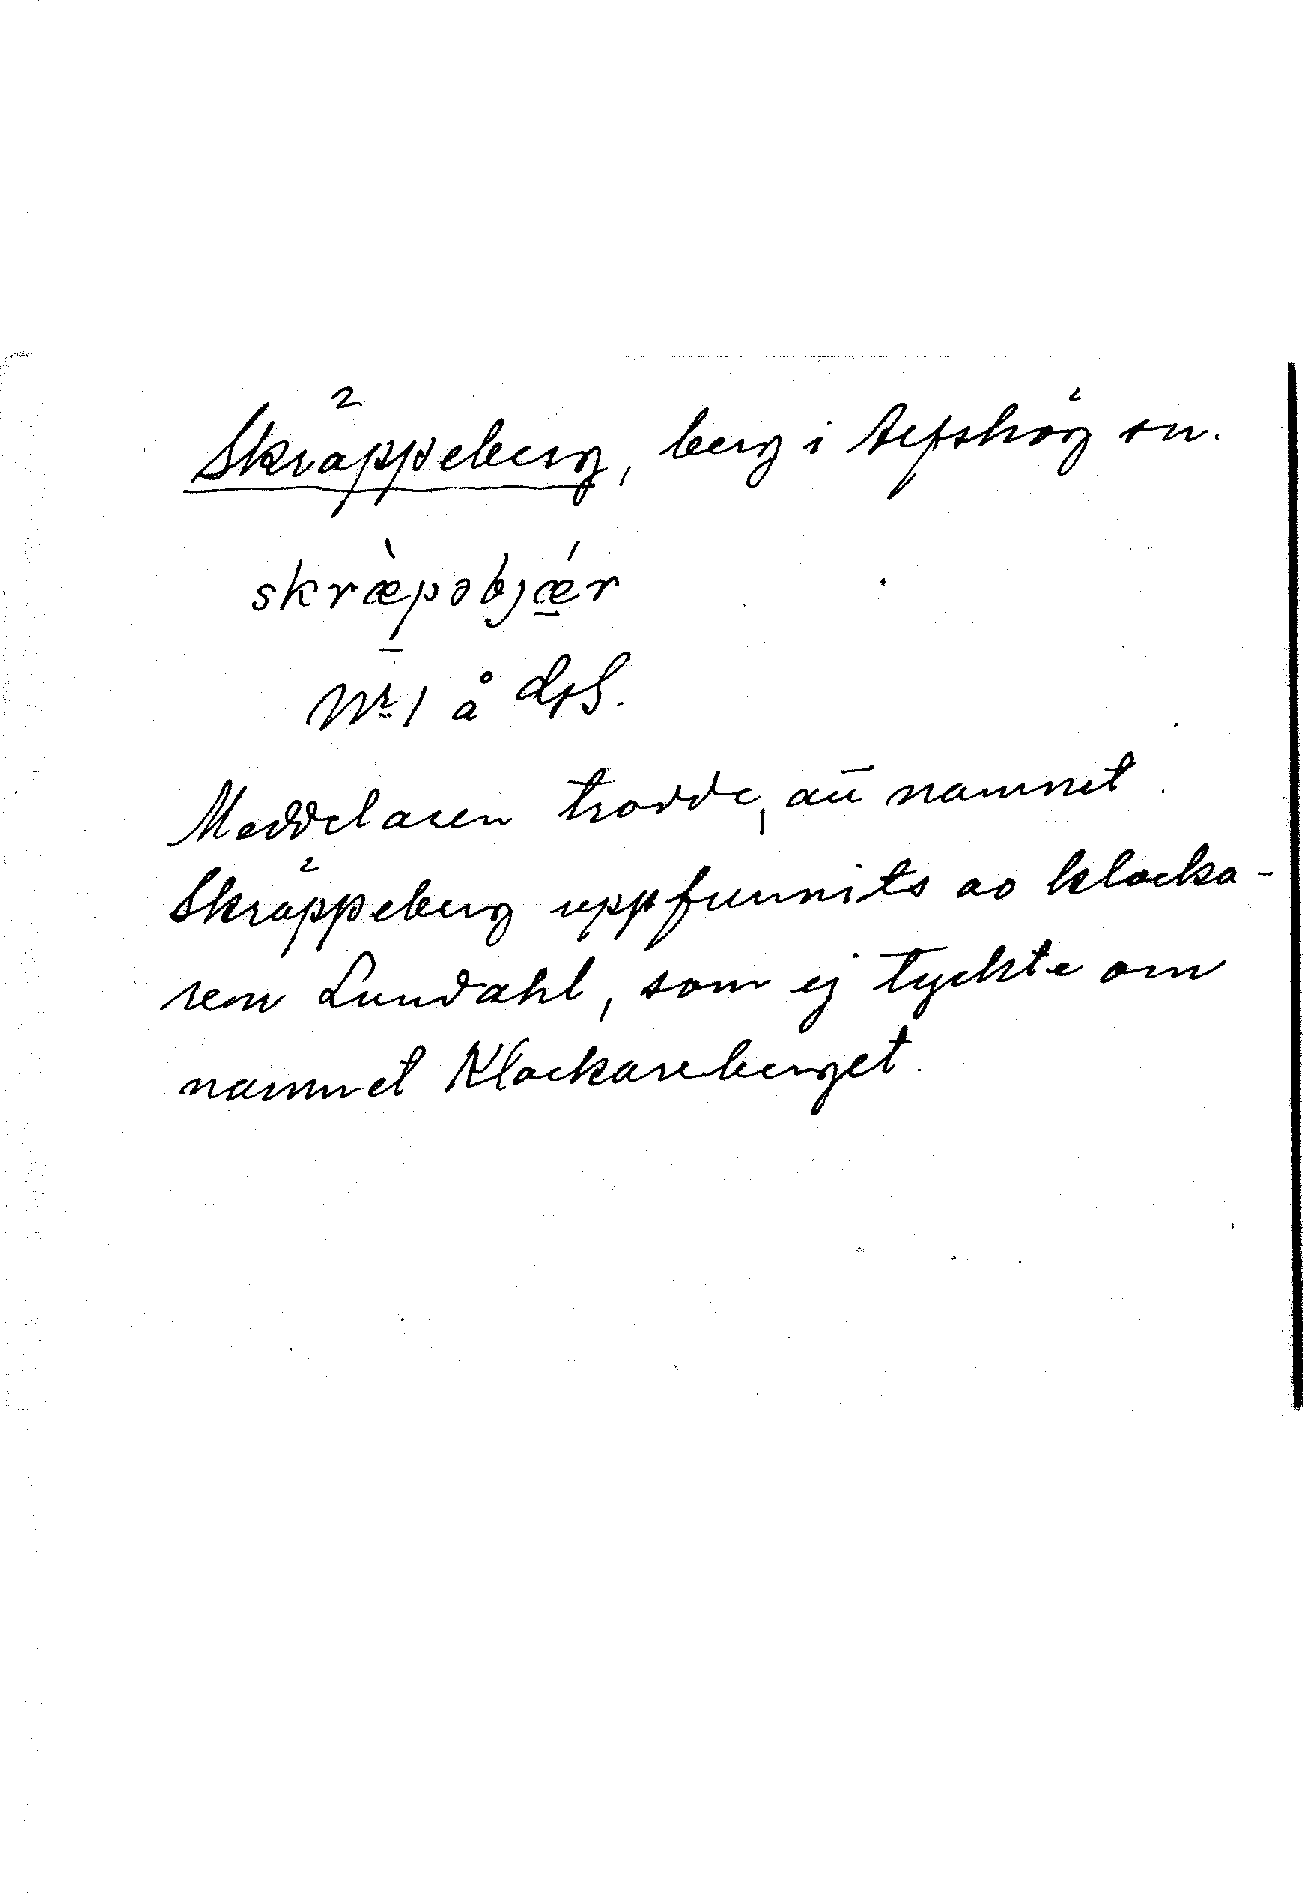 Skräppeberg, berg i Lefshög sn.
skræ̀pəbjǽr
Nr 1 å
Meddelaren trodde, att namnet
Skräppeberg uppfunnits av klocka-
ren Lundahl, som ej tyckte om
namnet Klockareberget.